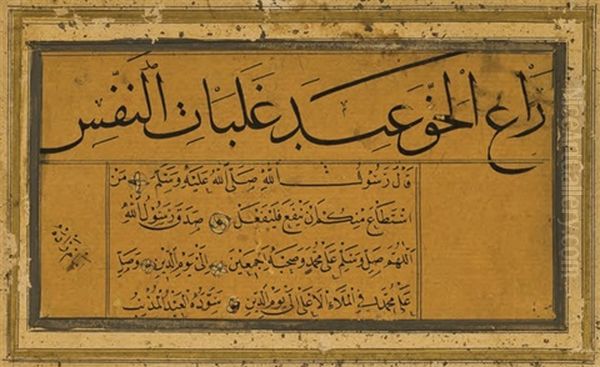 رَاعِ الْحَقَّ عِنْدَ غَلَبَاتِ النَّفْسِ
قَالَ رَسُولُ اللهِ صَلَّى اللهُ عَلَيْهِ وَسَلَّمَ مَنْ
اسْتَطَاعَ مِنْكُمْ اَنْ يَنْفَعَ فَلْيَفْعَلْ صَدَقَ رَسُولُ اللهِ
اَللّٰهُمَّ صَلِّ وَسَلِّمْ عَلَى مُحَمَّدٍ وَصَحْبِهِ اَجْمَعِينَ اِلَى يَوْمِ الدِّينِ وَصَلِّ
عَلَى مُحَمَّدٍ فِي الْمَلَاءِ الْاَعْلَى اِلَى يَوْمِ الدِّينِ سَوَّدَهُ الْعَبْدُ الْمُذْنِبُ